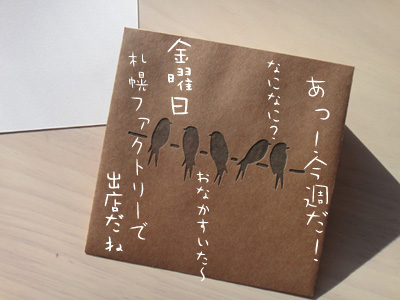 あっ!今週だ!
なになに?
おなかすいた~
金曜日
札幌ファクトリーで
出店だね